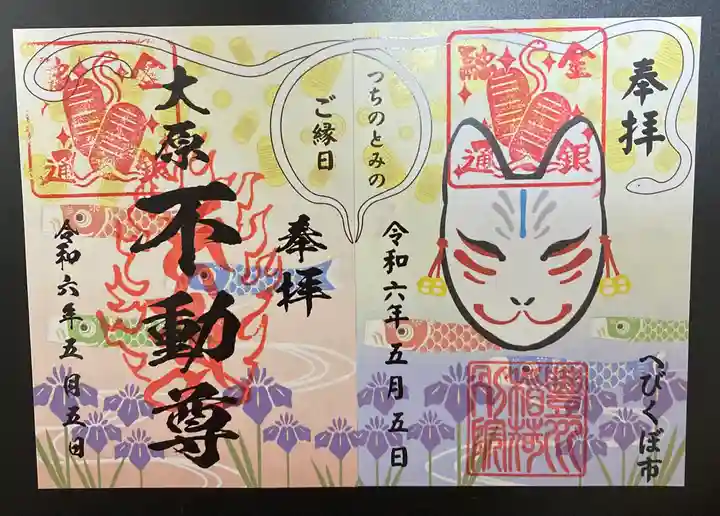 奉拝
金銀融通
つちのとみの
ご縁日
令和六年五月五日
へびくぼ市
金銀融通
大原
不動尊
奉拝
令和六年五月五日